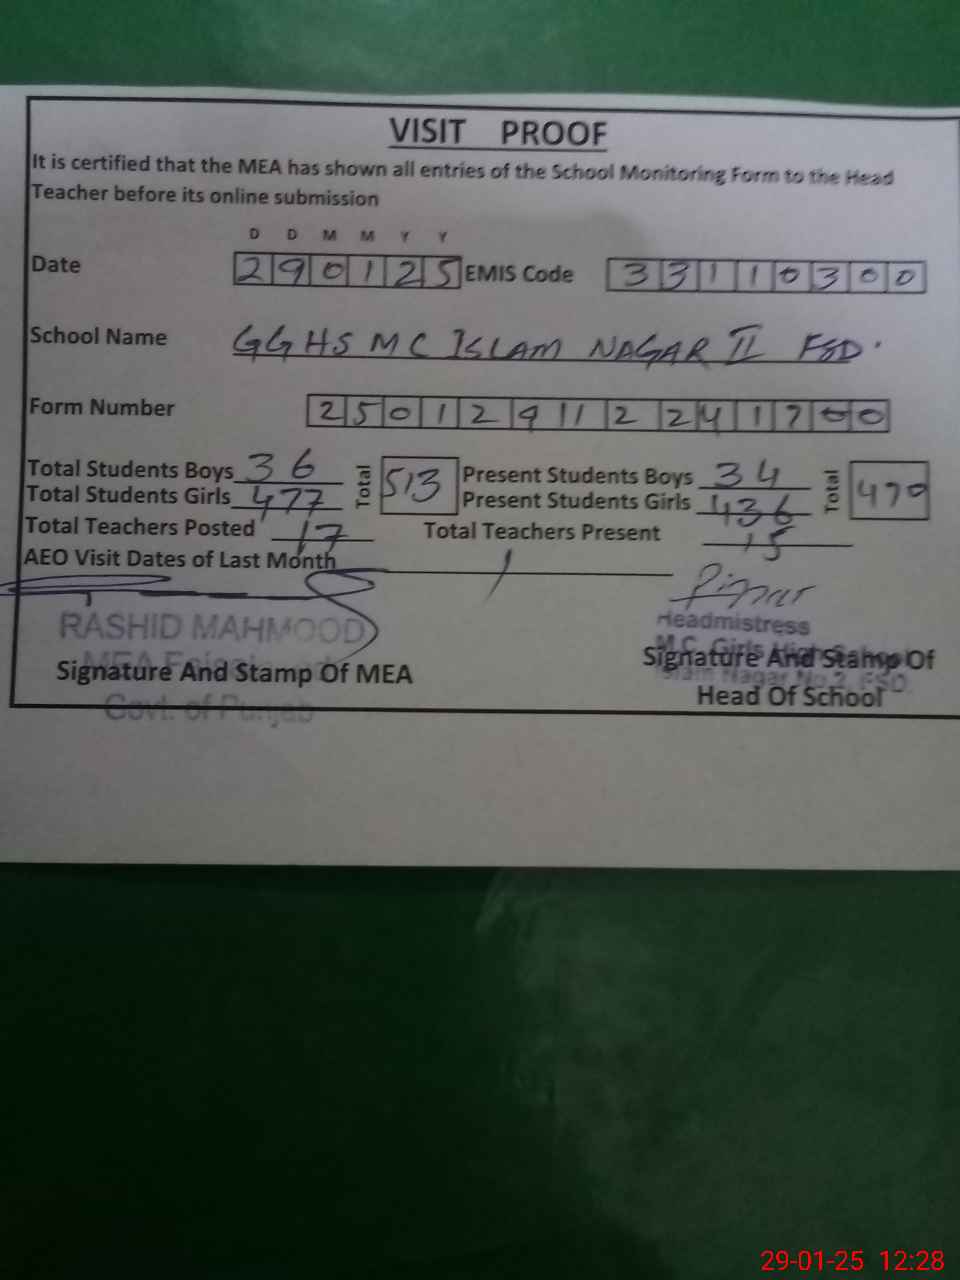 VISIT PROOF
It is certified that the MEA has shown all entries of the School Monitoring Form to the Head
Teacher before its online submission
D D M M Y Y
Date 290125 EMIS Code 33110300
School Name GGHS MC ISLAM NAGAR II FSD.
Form Number 250129112241700
Total Students Boys 36 Total 513 Present Students Boys 34 Total 470
Total Students Girls 477 Present Students Girls 436
Total Teachers Posted 17 Total Teachers Present 15
AEO Visit Dates of Last Month
RASHID MAHMOOD
MEA
Govt. of Punjab
Signature And Stamp Of MEA
Headmistress
M.C. Girls High School
Islam Nagar No.2 FSD.
Signature And Stamp Of
Head Of School
29-01-25 12:28